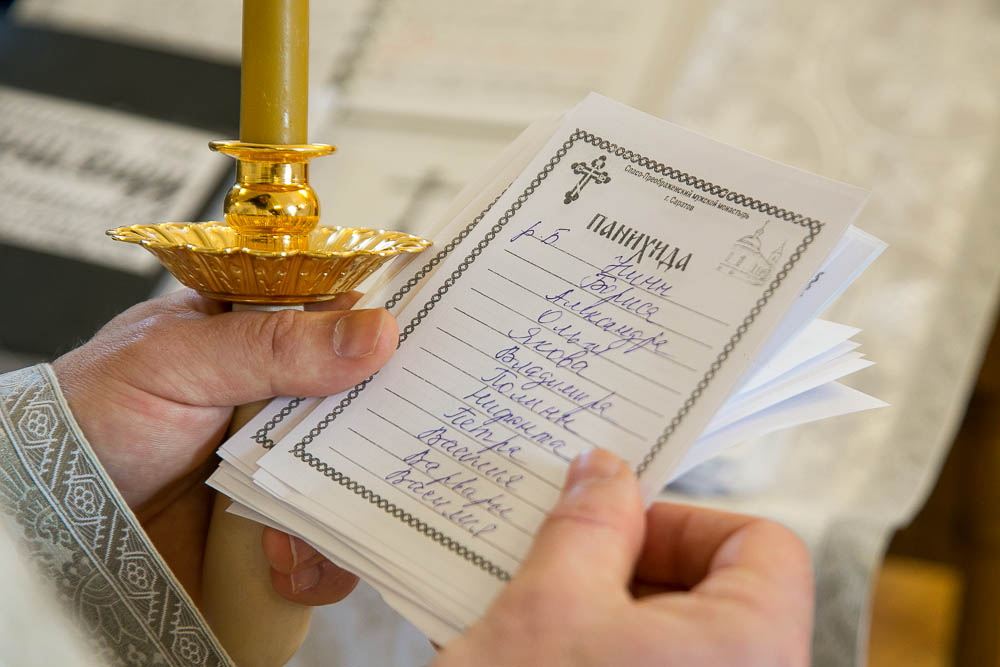 Спасо-Преображенский мужской монастырь
г. Саратов
ПАННХИДА
р. Б.
Нины
Бориса
Александра
Ольги
Якова
Владимира
Полины
Нифонта
Петра
Василия
Варвары
Василия